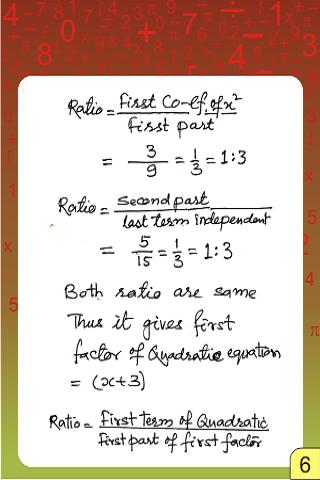 Ratio = First Co-ef. of x²
First part
= 3/9 = 1/3 = 1:3
Ratio = Second part
last term independent
= 5/15 = 1/3 = 1:3
Both ratio are same
Thus it gives first
factor of Quadratic equation
= (x+3)
Ratio = First Term of Quadratic
First part of first factor
6